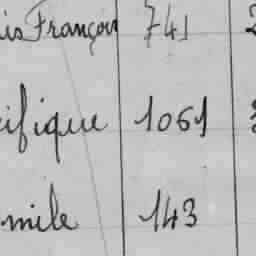 is François 741 2
ifique 1061 3
mile 143